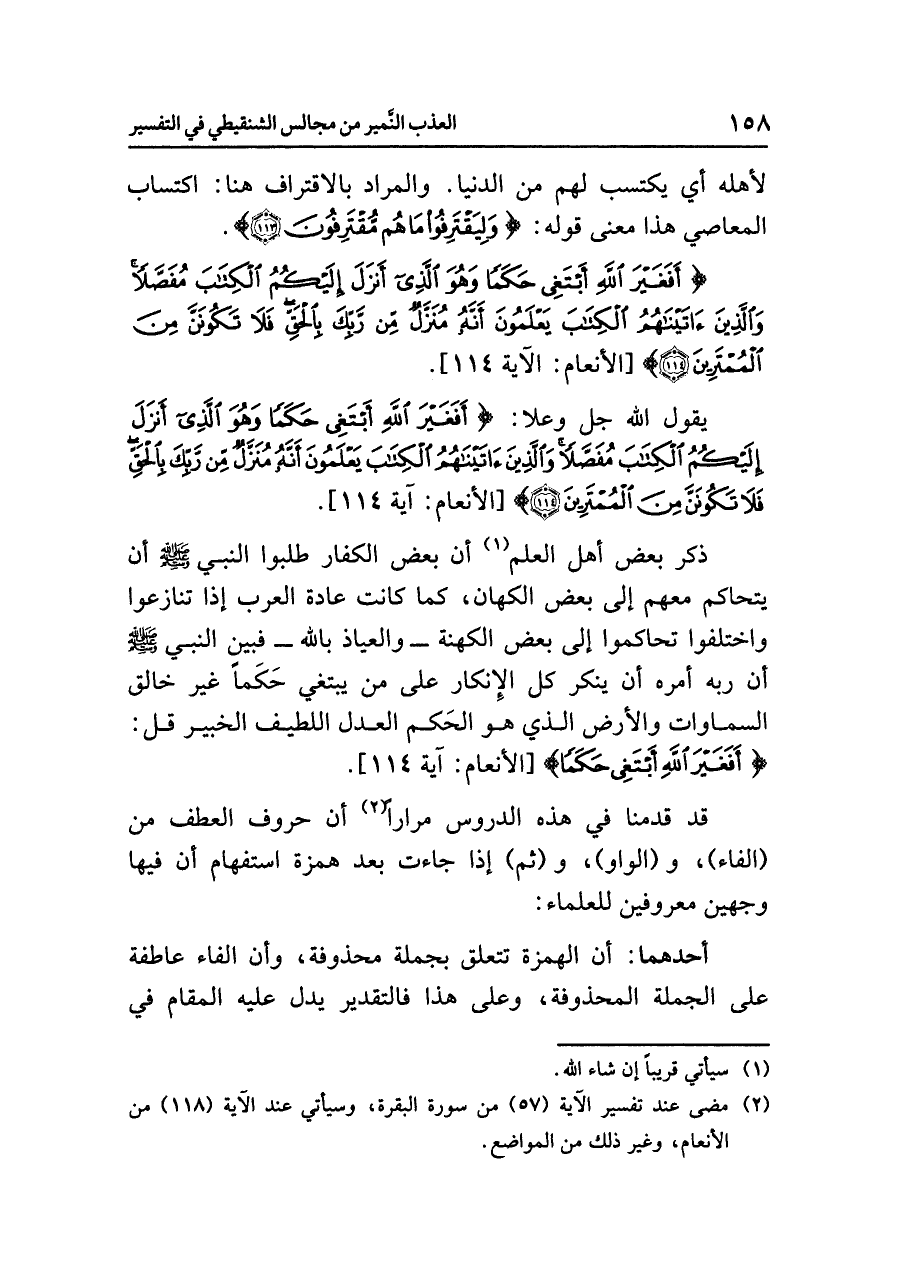 ١٥٨ العذب النَّمير من مجالس الشنقيطي في التفسير
لأهله أي يكتسب لهم من الدنيا. والمراد بالاقتراف هنا: اكتساب
المعاصي هذا معنى قوله: ﴿ وَلِيَقْتَرِفُوا۟ مَا هُم مُّقْتَرِفُونَ ١١٣﴾.
﴿ أَفَغَيْرَ ٱللَّهِ أَبْتَغِى حَكَمًا وَهُوَ ٱلَّذِىٓ أَنزَلَ إِلَيْكُمُ ٱلْكِتَٰبَ مُفَصَّلًا ۚ
وَٱلَّذِينَ ءَاتَيْنَٰهُمُ ٱلْكِتَٰبَ يَعْلَمُونَ أَنَّهُۥ مُنَزَّلٌ مِّن رَّبِّكَ بِٱلْحَقِّ ۖ فَلَا تَكُونَنَّ مِنَ
ٱلْمُمْتَرِينَ ١١٤﴾ [الأنعام: الآية ١١٤].
يقول الله جل وعلا: ﴿ أَفَغَيْرَ ٱللَّهِ أَبْتَغِى حَكَمًا وَهُوَ ٱلَّذِىٓ أَنزَلَ
إِلَيْكُمُ ٱلْكِتَٰبَ مُفَصَّلًا ۚ وَٱلَّذِينَ ءَاتَيْنَٰهُمُ ٱلْكِتَٰبَ يَعْلَمُونَ أَنَّهُۥ مُنَزَّلٌ مِّن رَّبِّكَ بِٱلْحَقِّ ۖ
فَلَا تَكُونَنَّ مِنَ ٱلْمُمْتَرِينَ ١١٤﴾ [الأنعام: آية ١١٤].
ذكر بعض أهل العلم(١) أن بعض الكفار طلبوا النبي ﷺ أن
يتحاكم معهم إلى بعض الكهان، كما كانت عادة العرب إذا تنازعوا
واختلفوا تحاكموا إلى بعض الكهنة ــ والعياذ بالله ــ فبين النبي ﷺ
أن ربه أمره أن ينكر كل الإِنكار على من يبتغي حَكَماً غير خالق
السماوات والأرض الذي هو الحَكم العدل اللطيف الخبير قل:
﴿ أَفَغَيْرَ ٱللَّهِ أَبْتَغِى حَكَمًا﴾ [الأنعام: آية ١١٤].
قد قدمنا في هذه الدروس مراراً(٢) أن حروف العطف من
(الفاء)، و (الواو)، و (ثم) إذا جاءت بعد همزة استفهام أن فيها
وجهين معروفين للعلماء:
أحدهما: أن الهمزة تتعلق بجملة محذوفة، وأن الفاء عاطفة
على الجملة المحذوفة، وعلى هذا فالتقدير يدل عليه المقام في
(١) سيأتي قريباً إن شاء الله.
(٢) مضى عند تفسير الآية (٥٧) من سورة البقرة، وسيأتي عند الآية (١١٨) من
الأنعام، وغير ذلك من المواضع.